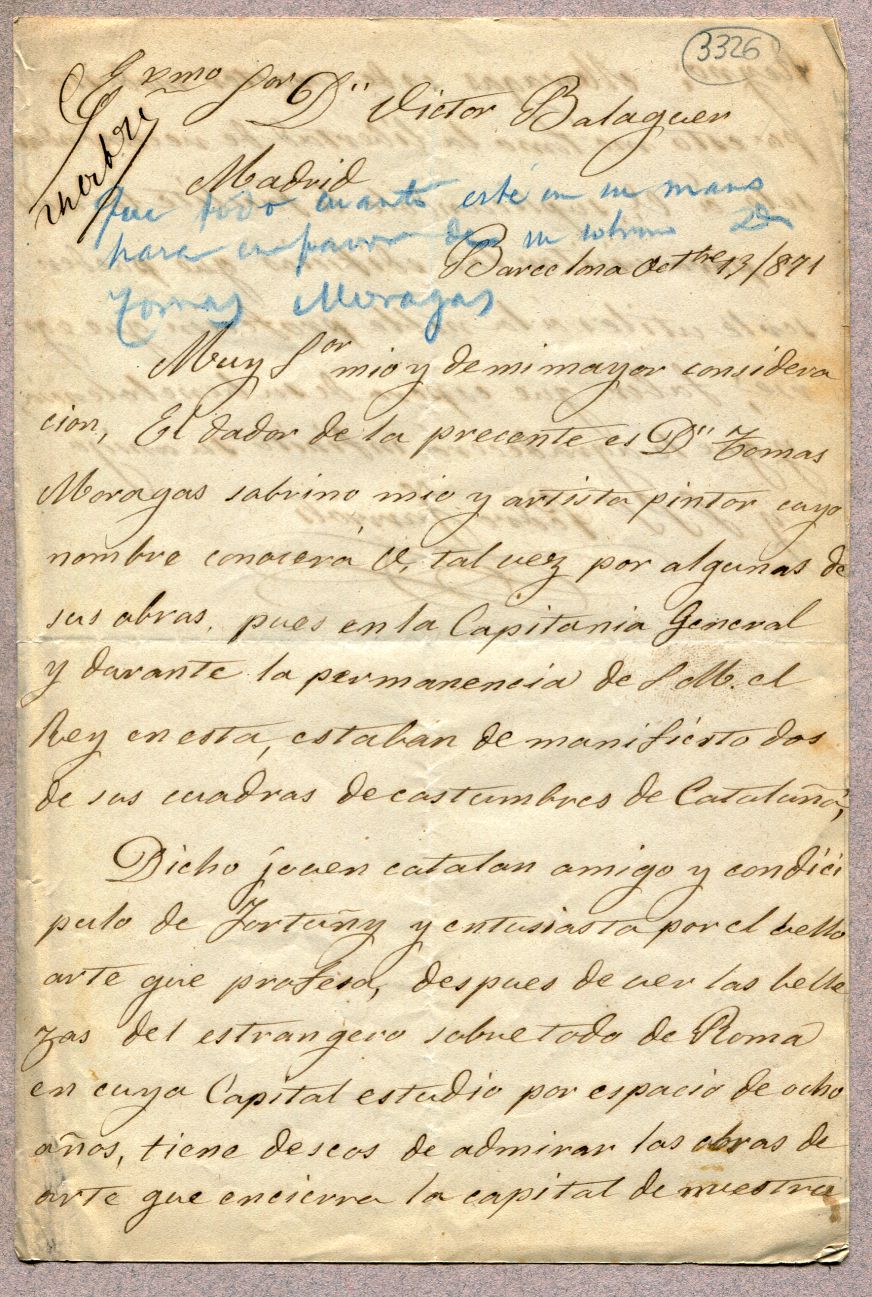 3326
Exmo Sor Dn Victor Balaguer
Madrid
Que todo cuanto esté en su mano
hara en favor de su sobrino Dn
Tomas Moragas
Barcelona Octbre 13/871
Muy Sor mio y de mi mayor considera
cion, El dador de la precente es Dn Tomas
Moragas sobrino mio y artista pintor cuyo
nombre conocerá V. tal vez por algunas de
sus obras, pues en la Capitania General
y durante la permanencia de S.M. el
Rey en esta, estaban de manifiesto dos
de sus cuadros de costumbres de Cataluña,
Dicho joven catalan amigo y condici
pulo de Fortuny y entusiasta por el bello
arte que profesa, despues de ver las belle
zas del estrangero sobre todo de Roma
en cuya Capital estudio por espacio de ocho
años, tiene deseos de admirar las obras de
arte que encierra la capital de nuestra